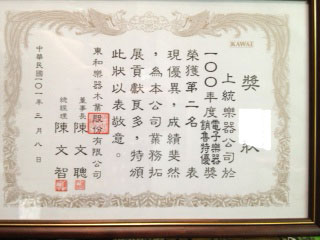 KAWAI
獎狀
上統樂器公司於
一○○年度電子樂器銷售特優獎
榮獲第二名 表
現優異，成績斐然
，為本公司業務拓
展貢獻良多，特頒
此狀以表敬意。
東和樂器木業股份有限公司
董事長 陳文聰
總經理 陳文智
中華民國一○一年三月八日